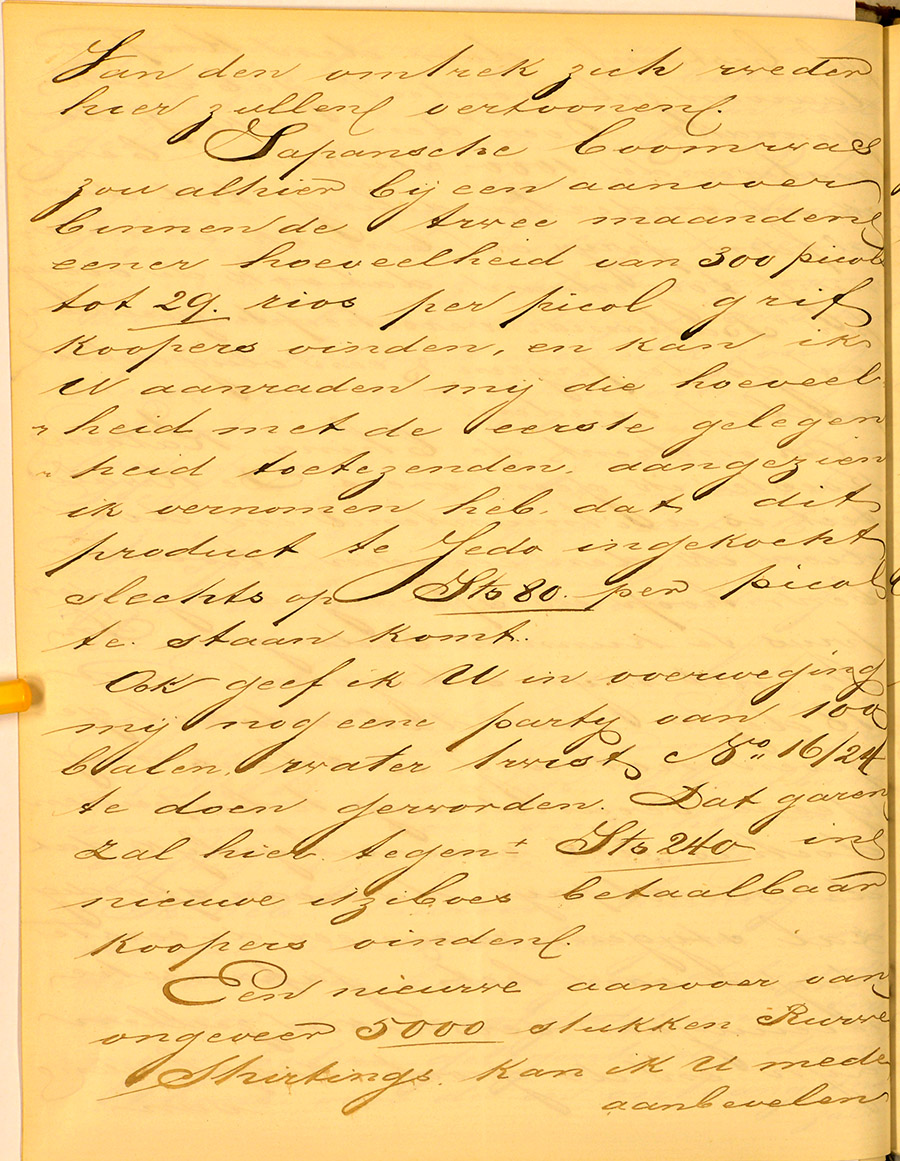 Van den omtrek zich weder
hier zullen vertoonen.
Japansche boomwas
zou alhier bij een aanvoer
binnen de twee maanden
eener hoeveelheid van 300 picols
tot 29. rios per picol grif
koopers vinden, en kan ik
U aanraden mij die hoeveel-
heid met de eerste gelegen
heid toetezenden, aangezien
ik vernomen heb, dat dit
product te Jedo ingekocht
slechts op Its 80. per picol
te staan komt.
Ook geef ik U in overweging
mij nog eene party van 100
balen, water twist No 16/24
te doen geworden. Dat garen
zal hier tegen ± Its 240 in
nieuwe itziboes betaalbaar
koopers vinden.
Een nieuwe aanvoer van
ongeveer 5000 stukken Ruwe
Shirtings. kan ik U mede
aanbevelen